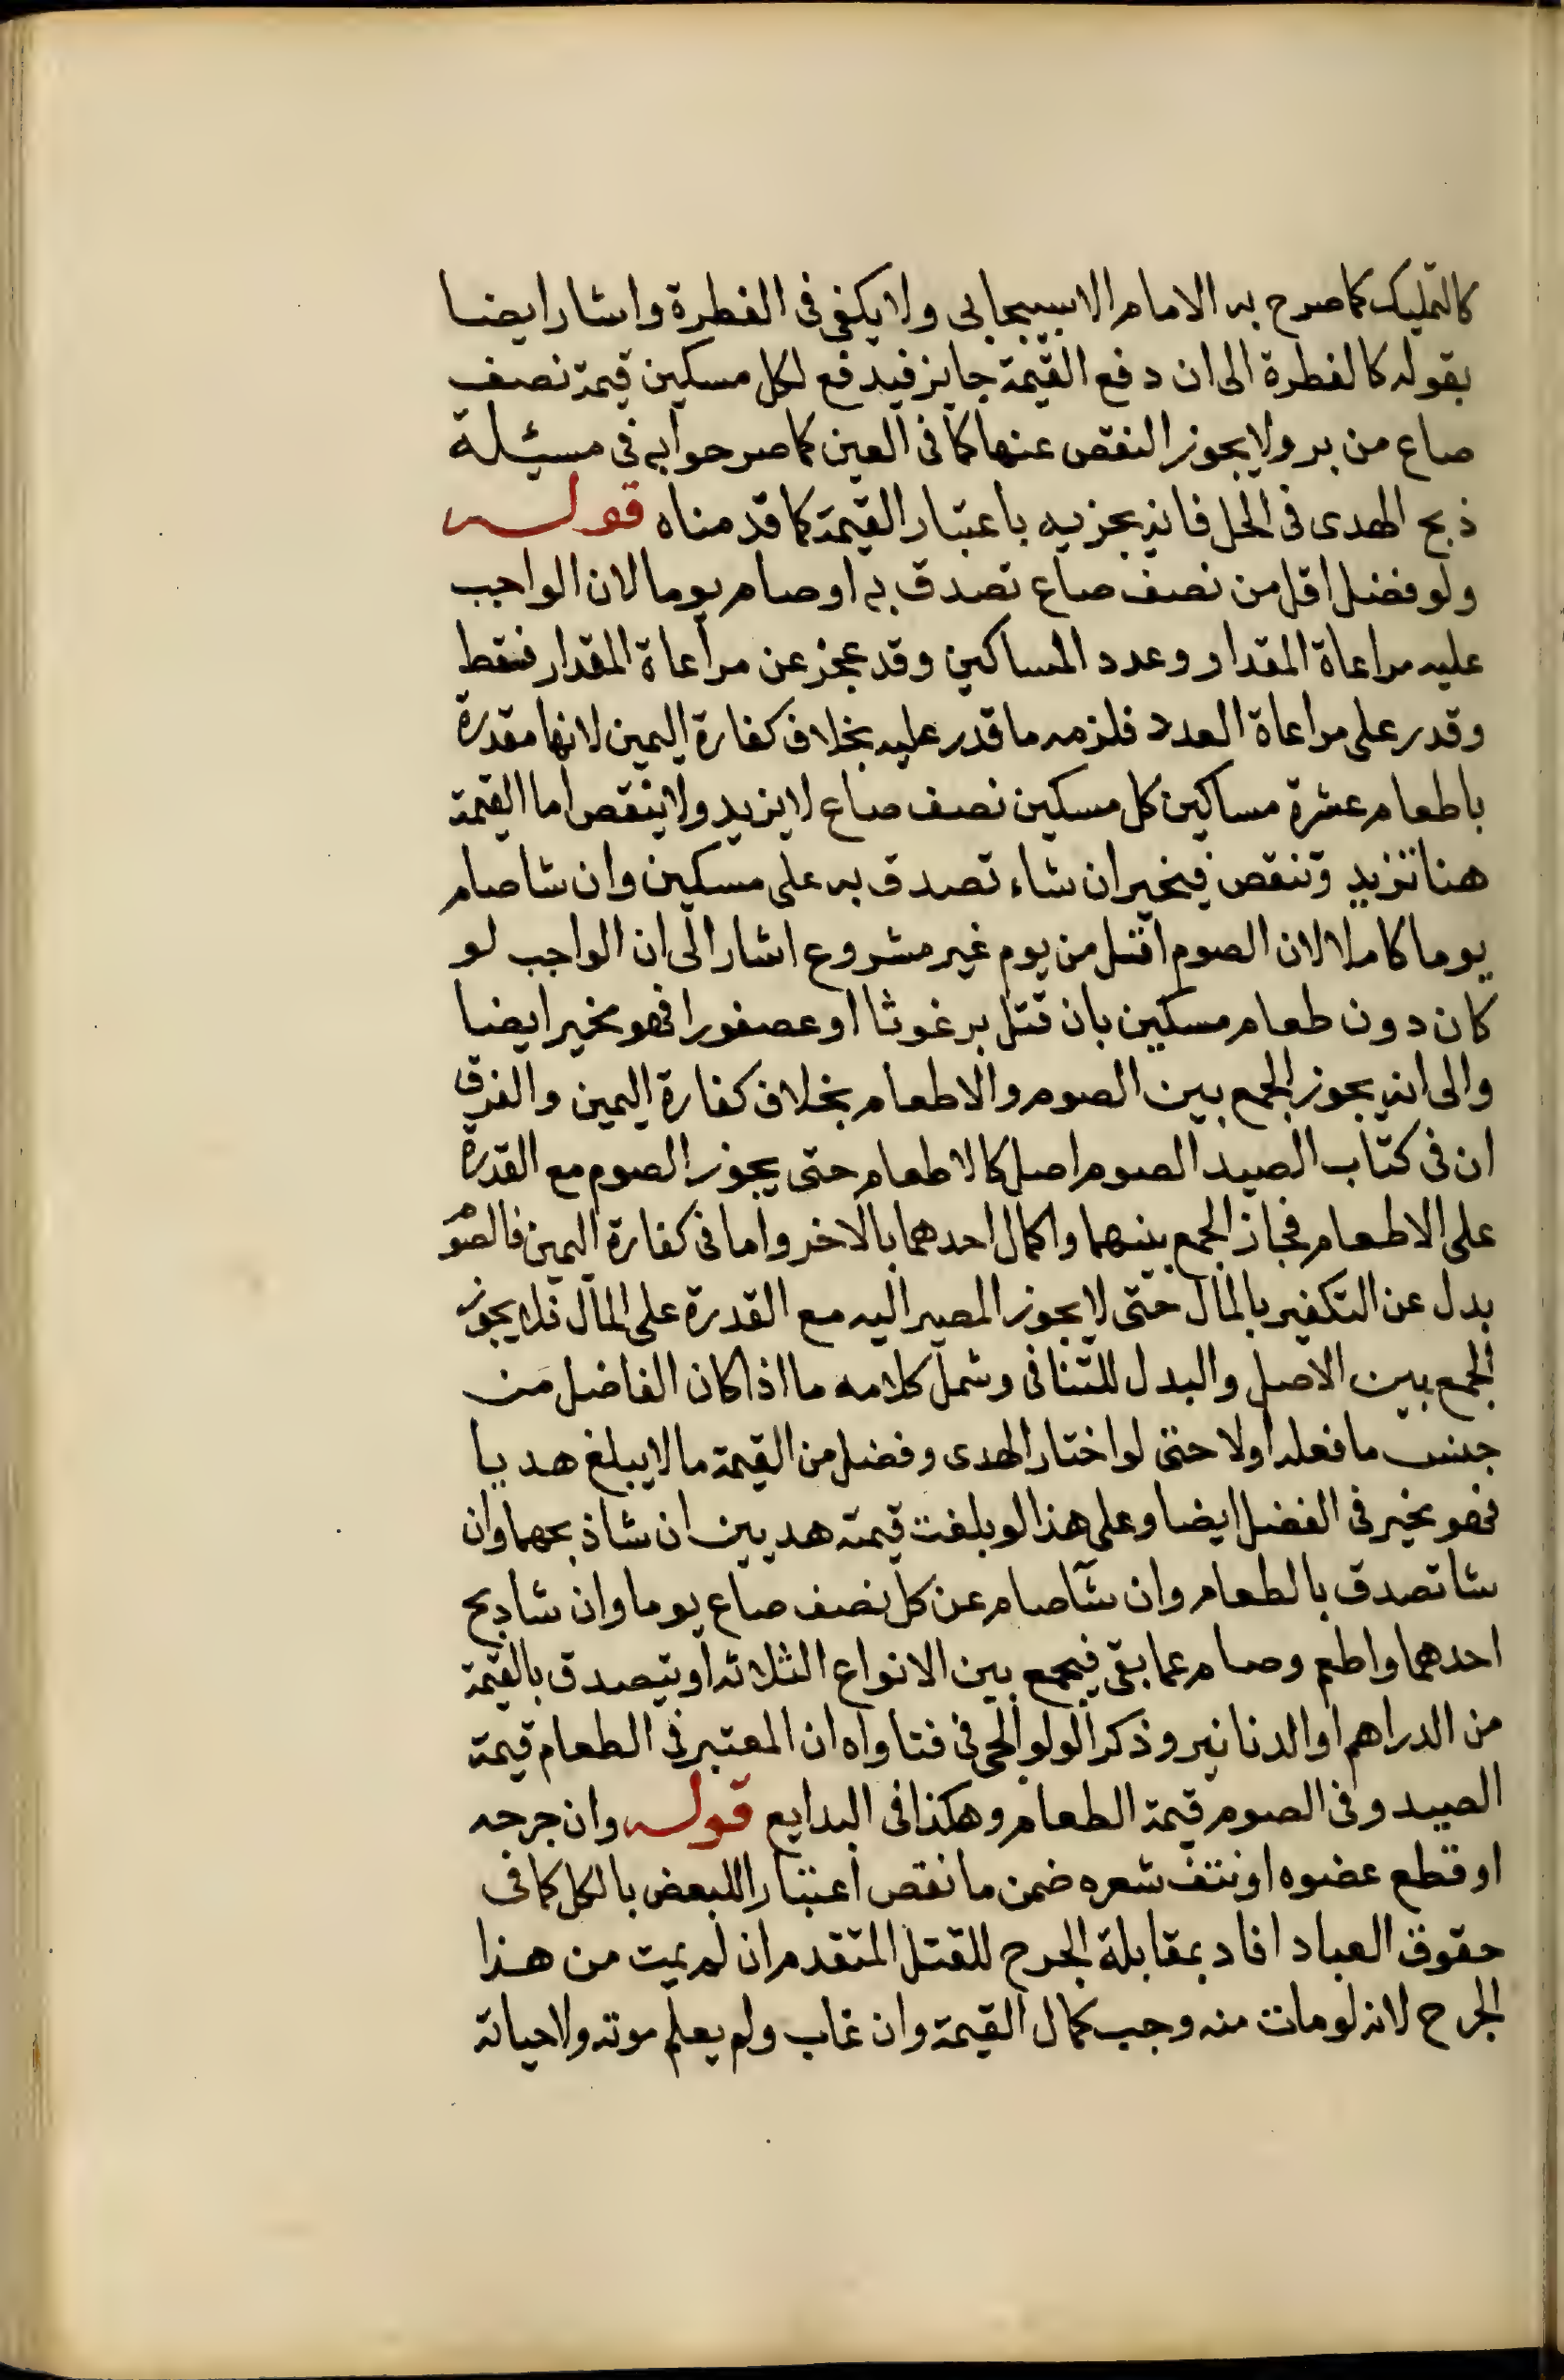 كالتمليك كما صرح به الامام الاسبيجابى ولا يكفى فى الفطرة واشار ايضا
بقوله كالفطرة الى ان دفع القيمة جايز فيدفع لكل مسكين قيمة نصف
صاع من بر ولا يجوز النقص عنها كما فى العين كما صرحوا به فى مسيئلة
ذبح الهدى فى الحل فانه يجزيه باعتبار القيمة كما قدمناه قوله
ولو فضل اقل من نصف صاع تصدق به او صام يوما لان الواجب
عليه مراعاة المقدار وعدد المساكين وقد عجز عن مراعاة المقدار فسقط
وقدر على مراعاة العدد فلزمه ما قدر عليه بخلاف كفارة اليمين لانها مقدرة
باطعام عشرة مساكين كل مسكين نصف صاع لا يزيد ولا ينقص اما القيمة
هنا تزيد وتنقص فيخير ان شاء تصدق به على مسكين وان شا صام
يوما كاملا لان الصوم اقل من يوم غير مشروع اشار الى ان الواجب لو
كان دون طعام مسكين بان قتل برغوثا او عصفورا فهو مخير ايضا
والى انه يجوز الجمع بين الصوم والاطعام بخلاف كفارة اليمين والفرق
ان فى كتاب الصيد الصوم اصل كالاطعام حتى يجوز الصوم مع القدرة
على الاطعام فجاز الجمع بينهما واكمال احدهما بالاخر واما فى كفارة اليمين فالصوم
بدل عن التكفير بالمال حتى لا يجوز المصير اليه مع القدرة على المال فلا يجوز
الجمع بين الاصل والبدل للتنافى وشمل كلامه ما اذا كان الفاضل من
جنس ما فعله اولا حتى لو اختار الهدى وفضل من القيمة ما لا يبلغ هديا
فهو مخير فى الفضل ايضا وعلى هذا لو بلغت قيمته هديين ان شا ذبحهما وان
شا تصدق بالطعام وان شآ صام عن كل نصف صاع يوما وان شا دبح
احدهما واطعم وصام عما بقى فيجمع بين الانواع الثلاثه او يتصدق بالقيمة
من الدراهم او الدنانير وذكر الولوالجى فى فتاواه ان المعتبر فى الطعام قيمة
الصيد وفى الصوم قيمة الطعام وهكذا فى البدايع قوله وان جرحه
او قطع عضوه او نتف شعره ضمن ما نقص اعتبارا للبعض بالكل كما فى
حقوق العباد افاد بمقابلة الجرح للقتل المتقدم ان لم يمت من هذا
الجرح لانه لو مات منه وجب كمال القيمة وان غاب ولم يعلم موته ولا حياته